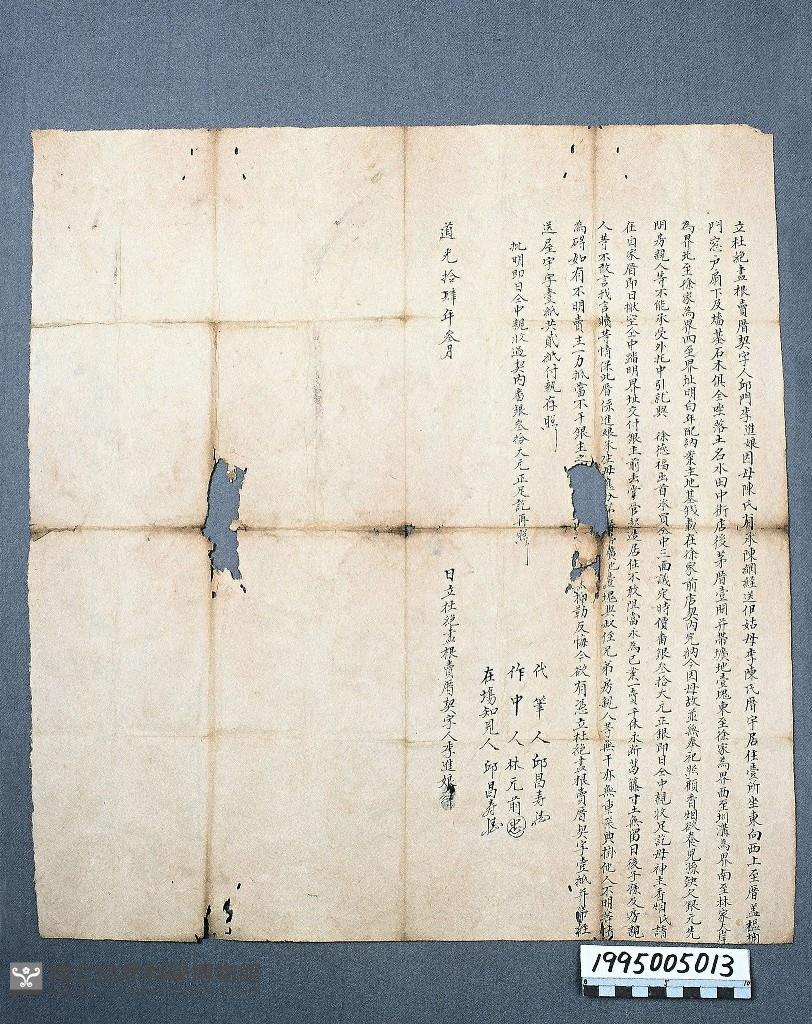 立杜絶盡根賣厝契字人邱門李進娘因母陳氏有承陳綢經送伊姑母李陳氏厝宇居住壹所坐東向西上至厝蓋楹桷
門窓户扇下及墻基石木俱全坐落土名水田中街店後茅厝壹間并帶壙地壹塊東至徐家為界西至圳溝為界南至林家
為界北至徐家為界四至界址明白年配納業主地基銭載在徐家前店契內完納今因母故並無奉祀照顧香烟欲奏兄添
問房親人等不能承受外托中引就與 徐德福出首承買仝中三面議定時價番銀叁拾大元正銀即日仝中親收足訖母神主香烟氏請
在自家厝即日撤空仝中踏明界址交付銀主前去掌管起造居住不敢阻當永為己業一賣千休永斷葛藤寸土無留日後子孫及房親
人等不敢言找言贖等情保此厝係進娘承 壙地壹塊與叔侄兄弟房親人等無干亦無重張典掛他人不明等情
為碍如有不明賣主一力抵當不干銀主之 抑勒反悔今欲有憑立杜絶盡根賣厝契字壹紙并帶
送屋宇字壹紙共貳紙付執存照
批明即日仝中親收過契內番銀叁拾大元正足訖再照
代筆人邱昌寿
作中人林元前
在塲知見人邱昌寿
道光拾肆年叁月 日立杜絶盡根賣厝契字人李進娘
1995005013